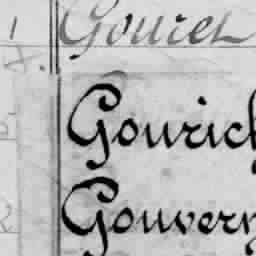 Gouret
Gourich
Gouvern